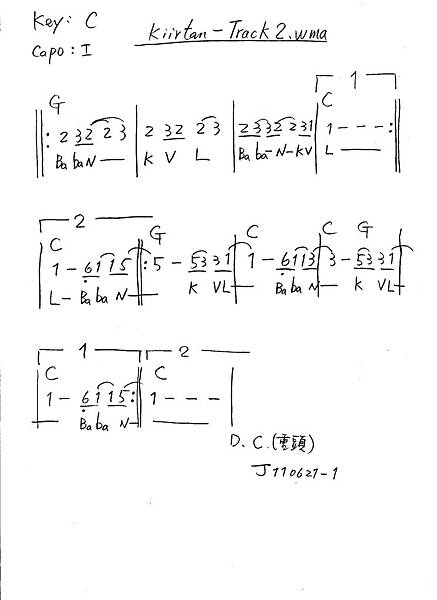 Key: C
Kiirtan - Track 2.wma
Capo: I
1
G C
||: 2 32 23 | 2 32 23 | 2332231 | 1 - - - :||
Ba baN — K V L Ba ba-N-KV L —
2
C G C C G
| 1 - 6115 ||: 5 - 5331 | 1 - 6113 | 3 - 5331 |
L- Ba ba N- K VL- Ba ba N- K VL-
1 2
C C
| 1 - 6115 :|| 1 - - - |
Ba ba N-
D. C. (重頭)
J110621-1